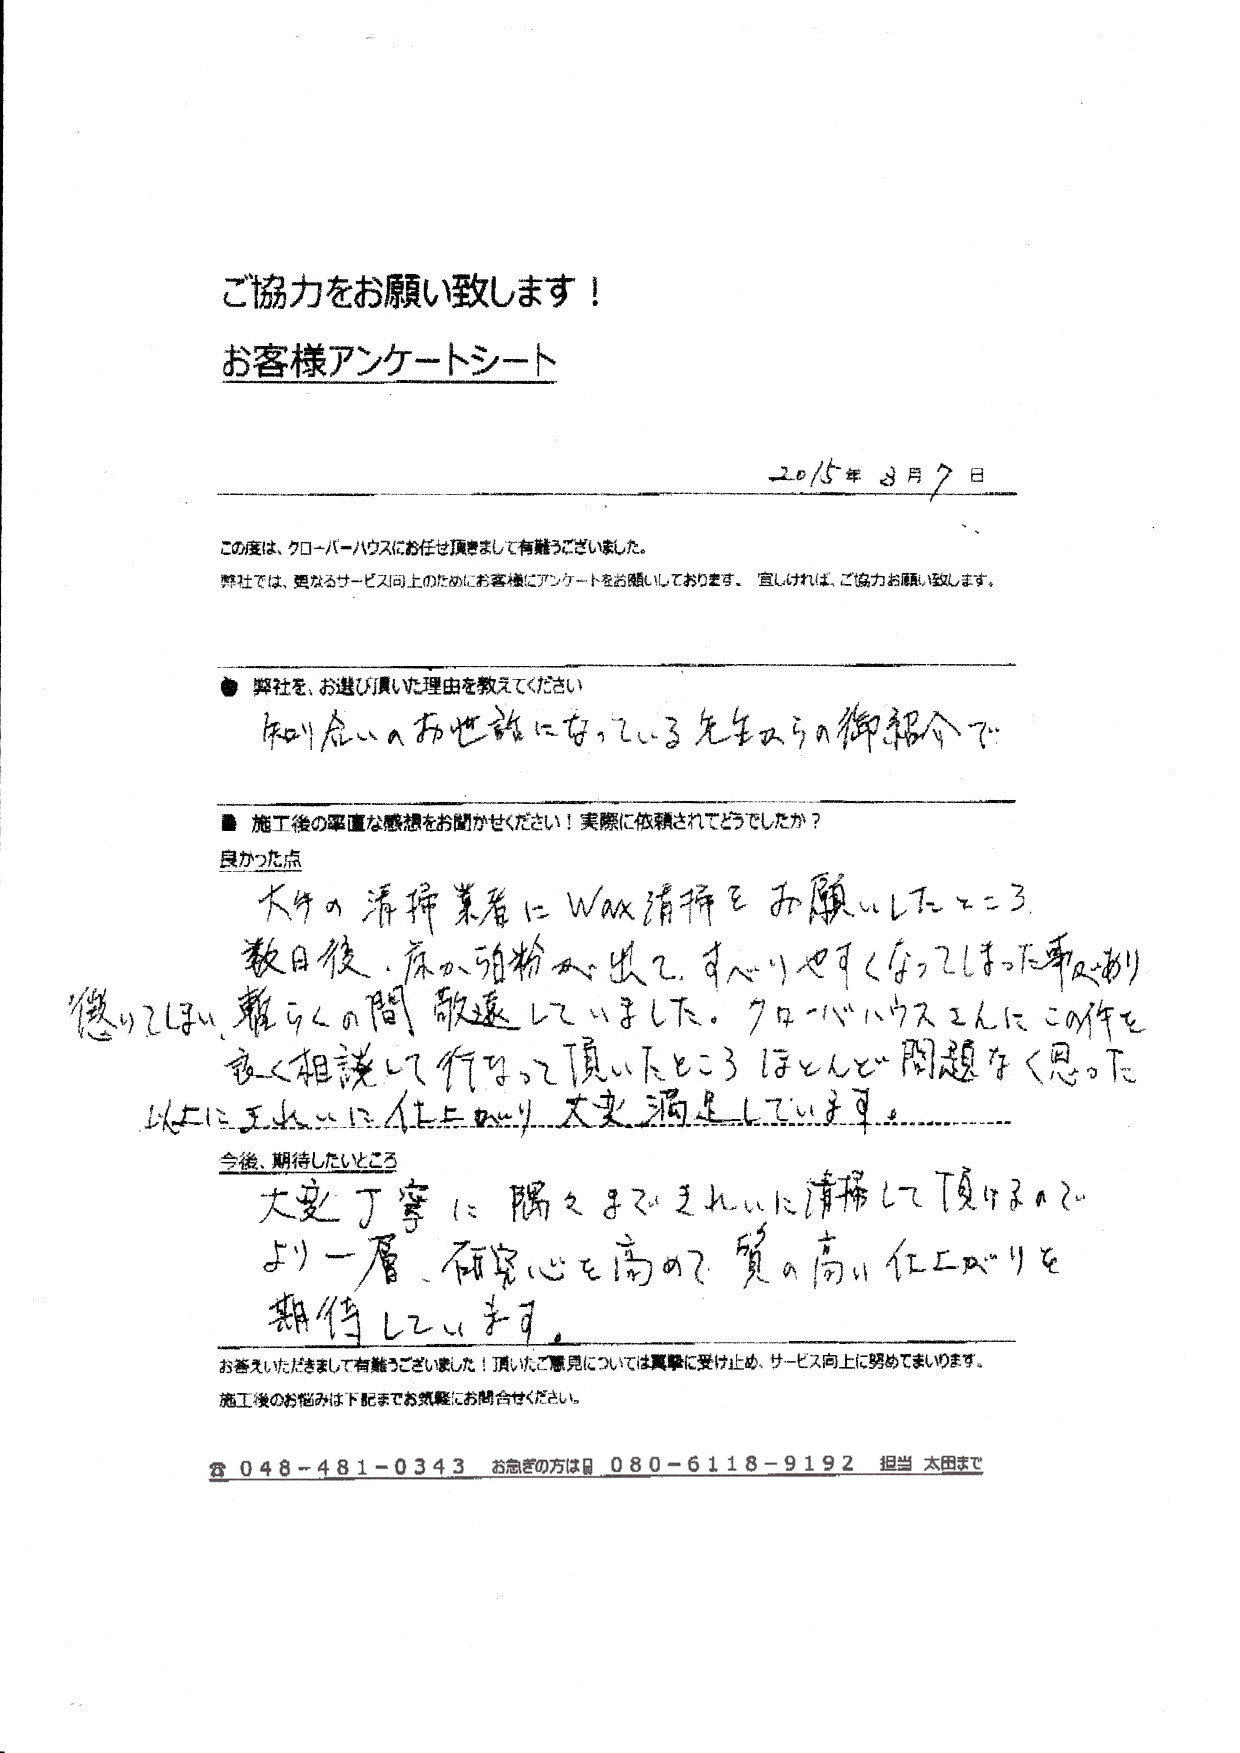 ご協力をお願い致します!
お客様アンケートシート
2015年 8月 7日
この度は、クローバーハウスにお任せ頂きまして有難うございました。
弊社では、更なるサービス向上のためにお客様にアンケートをお願いしております。 宜しければ、ご協力お願い致します。
● 弊社を、お選び頂いた理由を教えてください
知り合いのお世話になっている先生からの御紹介で
■ 施工後の率直な感想をお聞かせください!実際に依頼されてどうでしたか?
良かった点
大手の清掃業者にWax清掃をお願いしたところ
数日後、床から白粉が出て、すべりやすくなってしまった事があり
懲りてしまい、暫らくの間敬遠していました。クローバハウスさんにこの件を
良く相談して行なって頂いたところほとんど問題なく思った
以上にきれいに仕上がり大変満足しています。
今後、期待したいところ
大変丁寧に隅々まできれいに清掃して頂けるので
より一層、研究心を高めて質の高い仕上がりを
期待しています。
お答えいただきまして有難うございました!頂いたご意見については真摯に受け止め、サービス向上に努めてまいります。
施工後のお悩みは下記までお気軽にお問合せください。
☎048-481-0343 お急ぎの方は 080-6118-9192 担当 太田まで